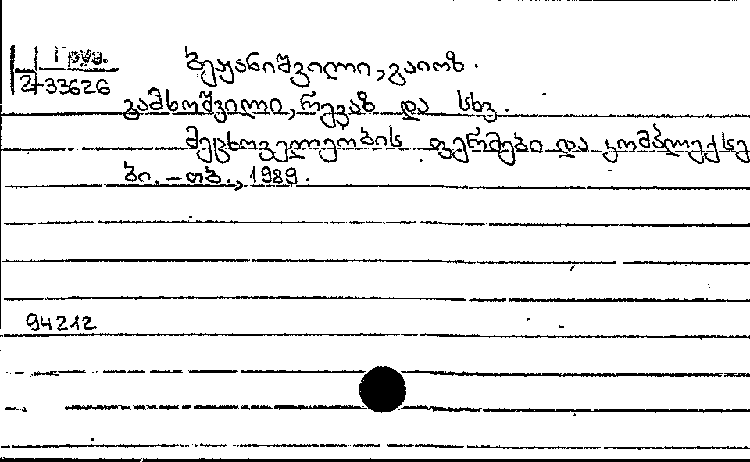 Груз.
2-33626
ბეჟანიშვილი, გაიოზ.
გამხოშვილი, რევაზ და სხვ.
მეცხოველეობის ფერმები და კომპლექსე
ბი. – თბ., 1989.
94212